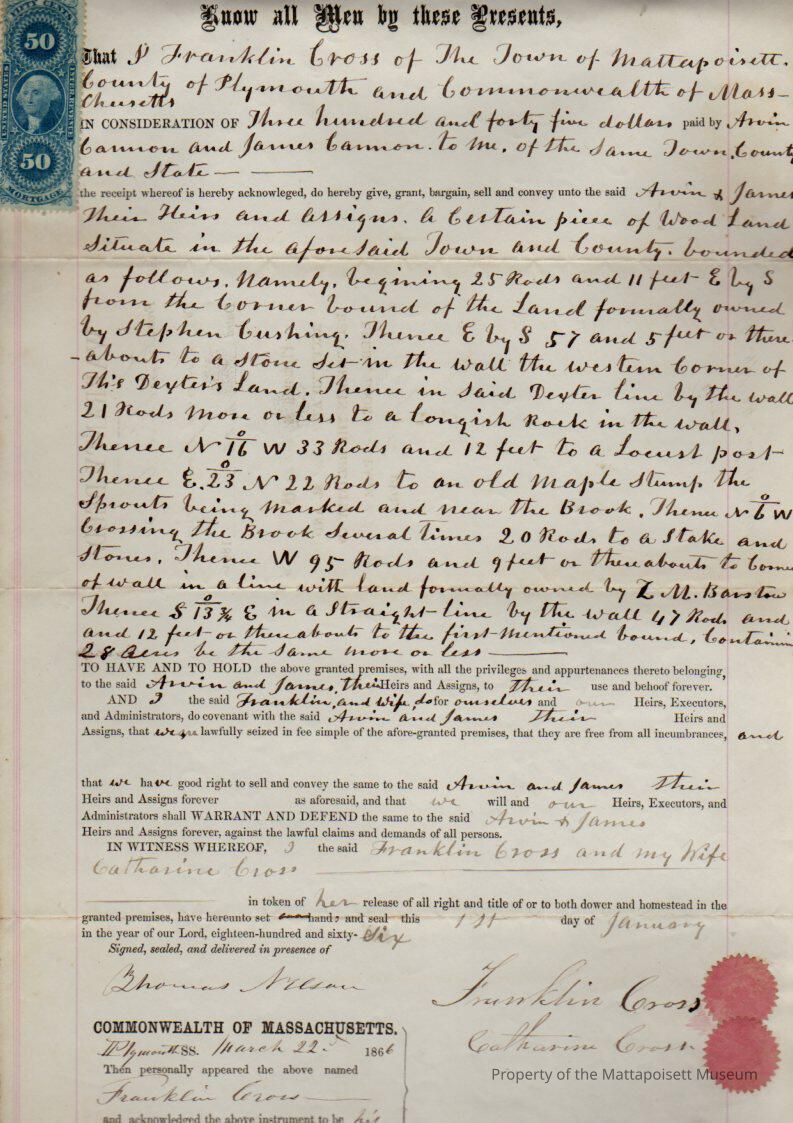 Know all Men by these Presents,
FIFTY CENTS
50
50
UNITED STATES
MORTGAGE
That I Franklin Cross of The Town of Mattapoisett.
County of Plymouth and Commonwealth of Mass-
chusetts
IN CONSIDERATION OF Three hundred and forty five dollars paid by Arvin
Cannon and James Cannon. to me, of the Same Town, County
and State —
the receipt whereof is hereby acknowleged, do hereby give, grant, bargain, sell and convey unto the said Arvin & James
Their Heirs and assigns. A Certain piece of Wood Land
Situate in the aforesaid Town and County. bounded
as follows. Namely, begining 25 Rods and 11 feet E by S
from the Corner bound of the Land formally owned
by Stephen Cushing. Thence E by S 57 and 5 feet or there-
abouts to a stone set in the wall the western Corner of
This Dexter's Land. Thence in said Dexter line by the wall
21 Rods more or less to a longish Rock in the wall,
Thence N 16° W 33 Rods and 12 feet to a Locust post
Thence E. 23° N 22 Rods to an old maple Stump the
Sprouts being marked and near the Brook. Thence N 6° W
Crossing the Brook Several times 20 Rods to a Stake and
Stones. Thence W 95 Rods and 9 feet or thereabouts to Corner
of wall in a line with land formally owned by Z. M. Barstow
Thence S 13°¾ E in a straight line by the wall 47 Rods and
and 12 feet or thereabouts to the first mentioned bound, Containin
28 Acres be the same more or less —
TO HAVE AND TO HOLD the above granted premises, with all the privileges and appurtenances thereto belonging,
to the said Arvin and James, their Heirs and Assigns, to Their use and behoof forever.
AND I the said Franklin, and wife do for ourselves and our Heirs, Executors,
and Administrators, do covenant with the said Arvin and James Their Heirs and
Assigns, that we are lawfully seized in fee simple of the afore-granted premises, that they are free from all incumbrances, and
that we have good right to sell and convey the same to the said Arvin and James Their
Heirs and Assigns forever as aforesaid, and that we will and our Heirs, Executors, and
Administrators shall WARRANT AND DEFEND the same to the said Arvin & James
Heirs and Assigns forever, against the lawful claims and demands of all persons.
IN WITNESS WHEREOF, I the said Franklin Cross and my Wife
Catharine Cross
in token of her release of all right and title of or to both dower and homestead in the
granted premises, have hereunto set our hands and seal this 1st day of January
in the year of our Lord, eighteen-hundred and sixty-Six
Signed, sealed, and delivered in presence of
Thomas Nelson
Franklin Cross
Catharine Cross
COMMONWEALTH OF MASSACHUSETTS.
Plymouth SS. March 22d 1866
Then personally appeared the above named
Franklin Cross
and acknowledged the above instrument to be his
Property of the Mattapoisett Museum